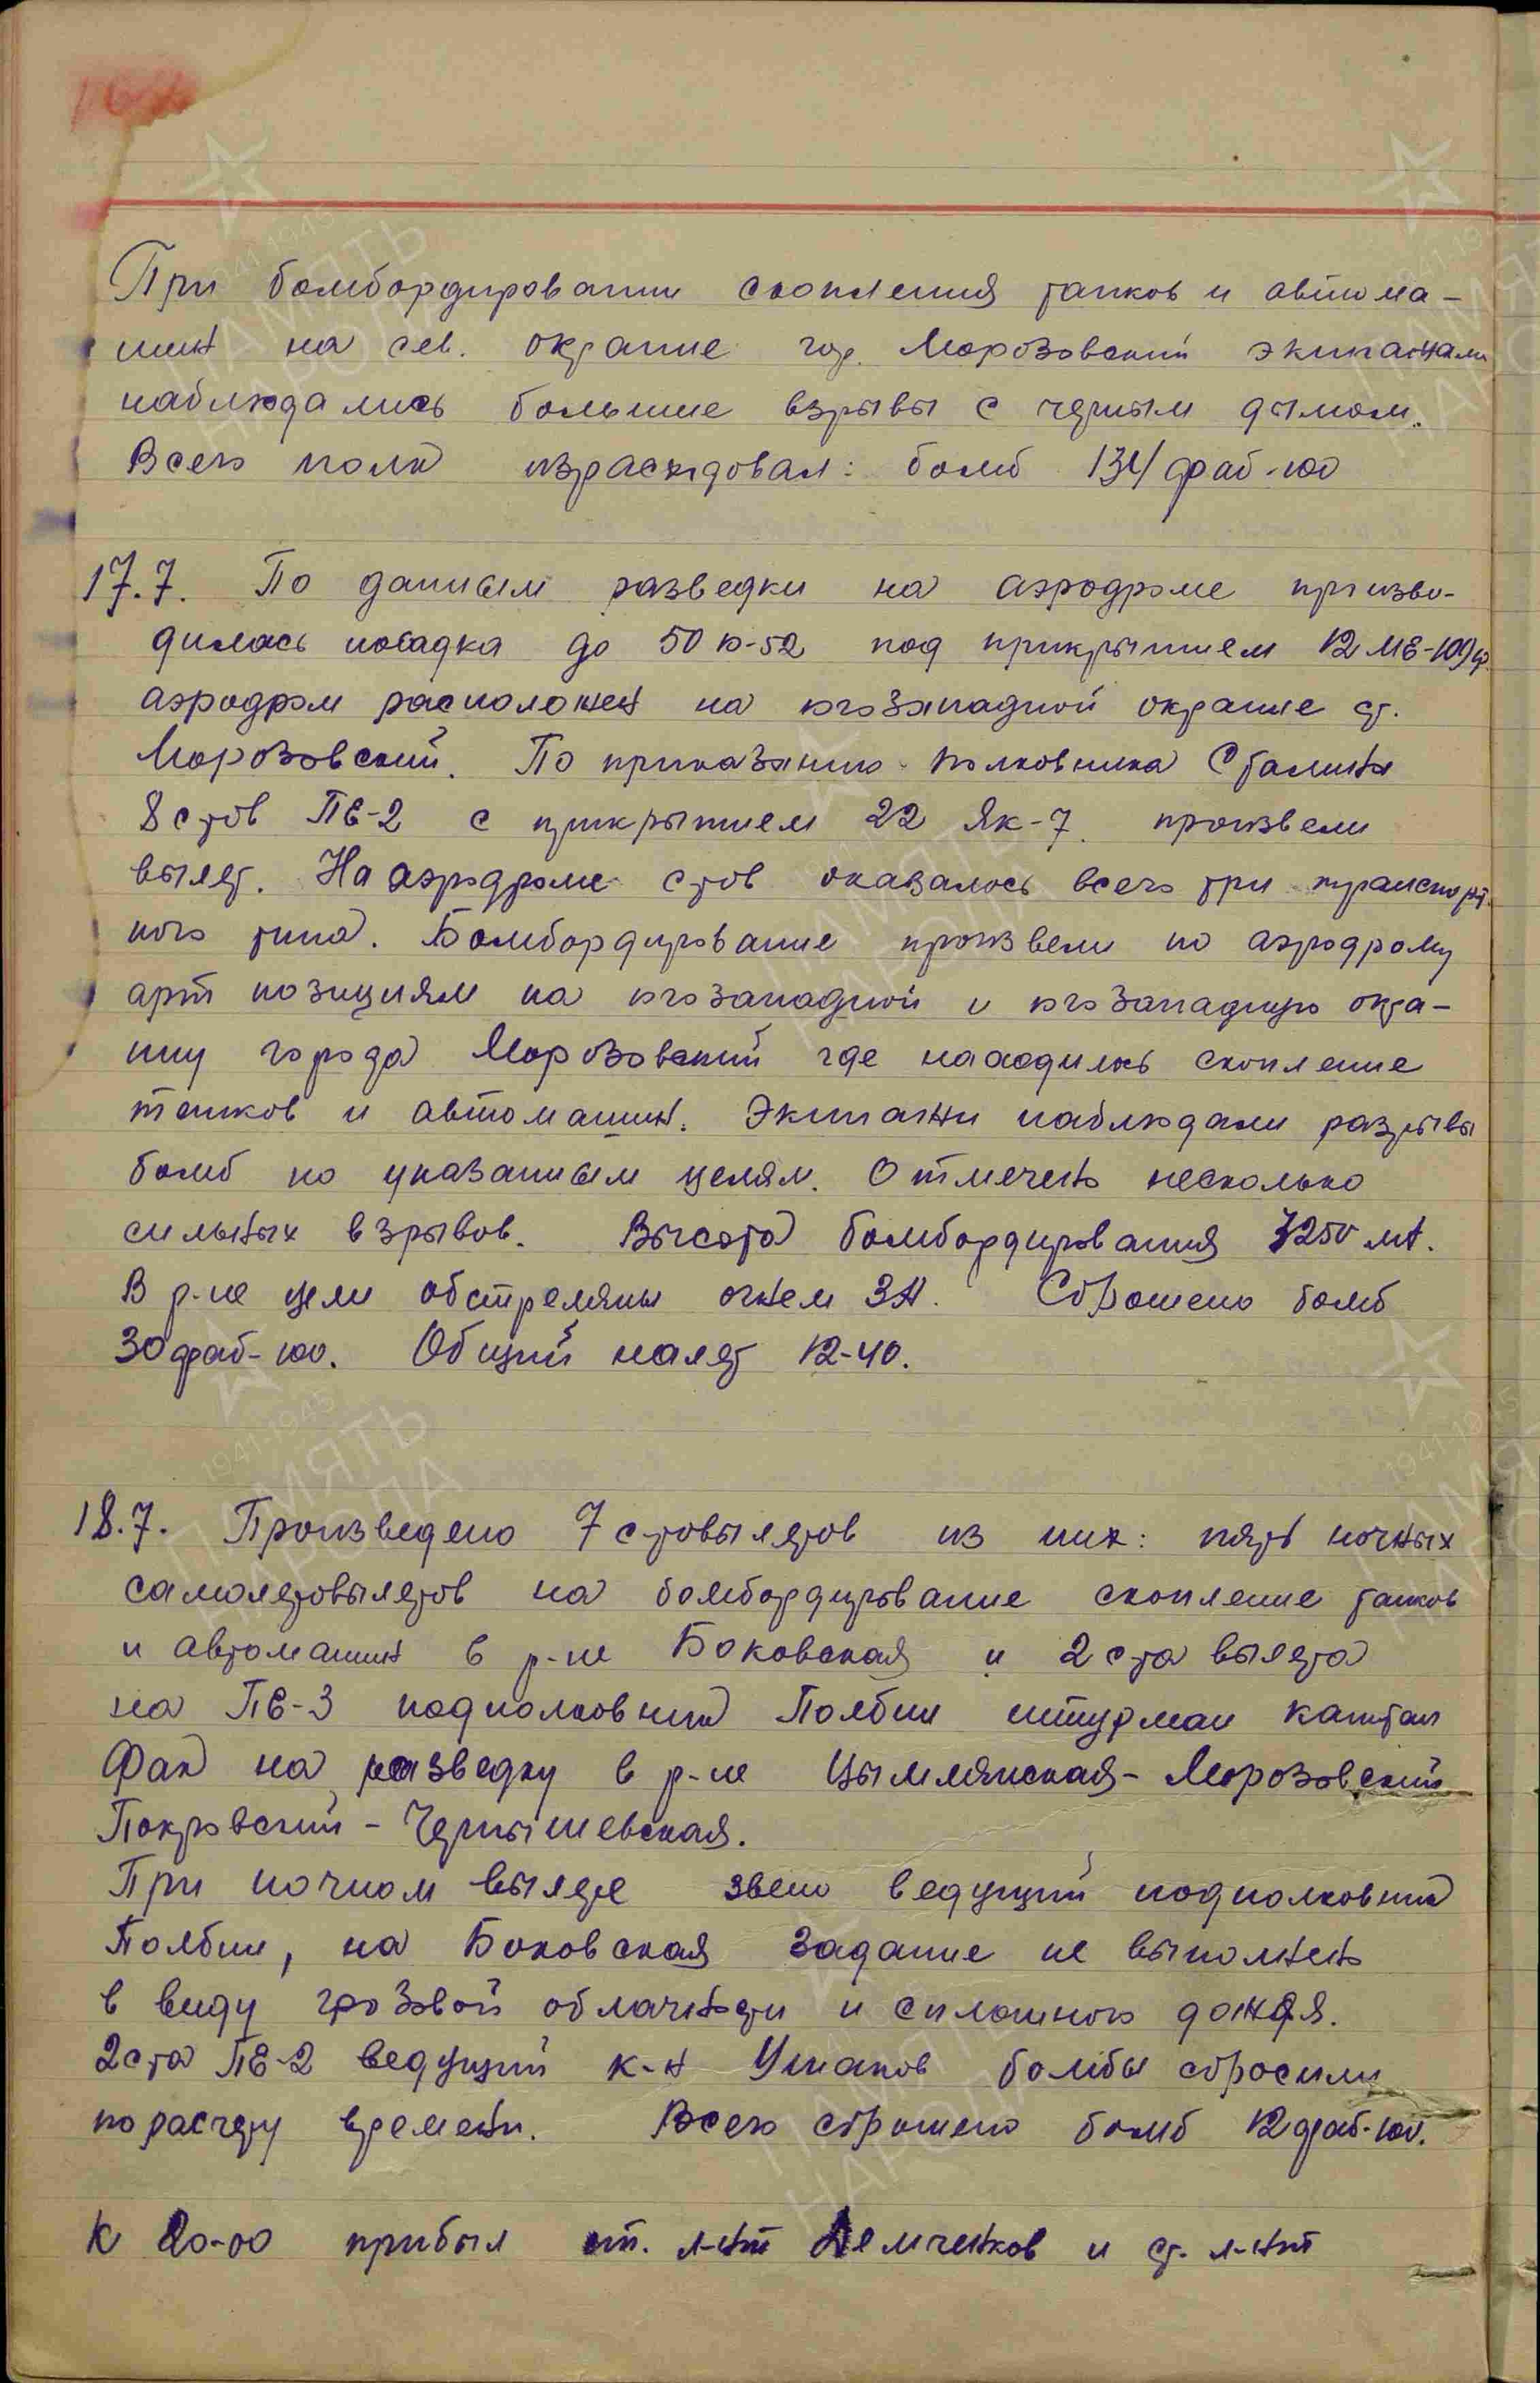 При бомбордировании скопления танков и автома-
шин на сев. окраине гор. Морозовский экипажами
наблюдались большие взрывы с черным дымом.
Всего полк израсходовал: бомб 134 фаб-100
17.7. По данным разведки на аэродроме произво-
дилась посадка до 50 ю-52 под прикрытием 12 МЕ-109ф.
аэродром расположен на югозападной окраине ст.
Морозовский. По приказанию полковника Сталина
8 с-тов ПЕ-2 с прикрытием 22 Як-7. произвели
вылет. На аэродроме с-тов оказалось всего три транспорт-
ного типа. Бомбордирование произвели по аэродрому
арт позициям на югозападной и югозападную окра-
ину города Морозовский где находилось скопление
танков и автомашин. Экипажи наблюдали разрывы
бомб по указанным целям. Отмечено несколько
сильных взрывов. Высота бомбордирования 3250 мт.
В р-не цели обстреляны огнем ЗА. Сброшено бомб
30 фаб-100. Общий налет 12-40.
18.7. Произведено 7 с-товылетов из них: пять ночных
самолетовылетов на бомбордирование скопление танков
и автомашин в р-не Боковская и 2 с-та вылета
на ПЕ-3 подполковник Полбин штурман капитан
Фак на разведку в р-не Цымлянская - Морозовский
Покровский - Чернышевская.
При ночном вылете звено ведущий подполковник
Полбин, на Боковская задание не выполнено
в виду грозовой облачности и сплошного дождя.
2 с-та ПЕ-2 ведущий к-н Ушаков бомбы сбросили
по расчету времени. Всего сброшено бомб 12 фаб-100.
К 20-00 прибыл ст. л-нт Демченков и ст. л-нт